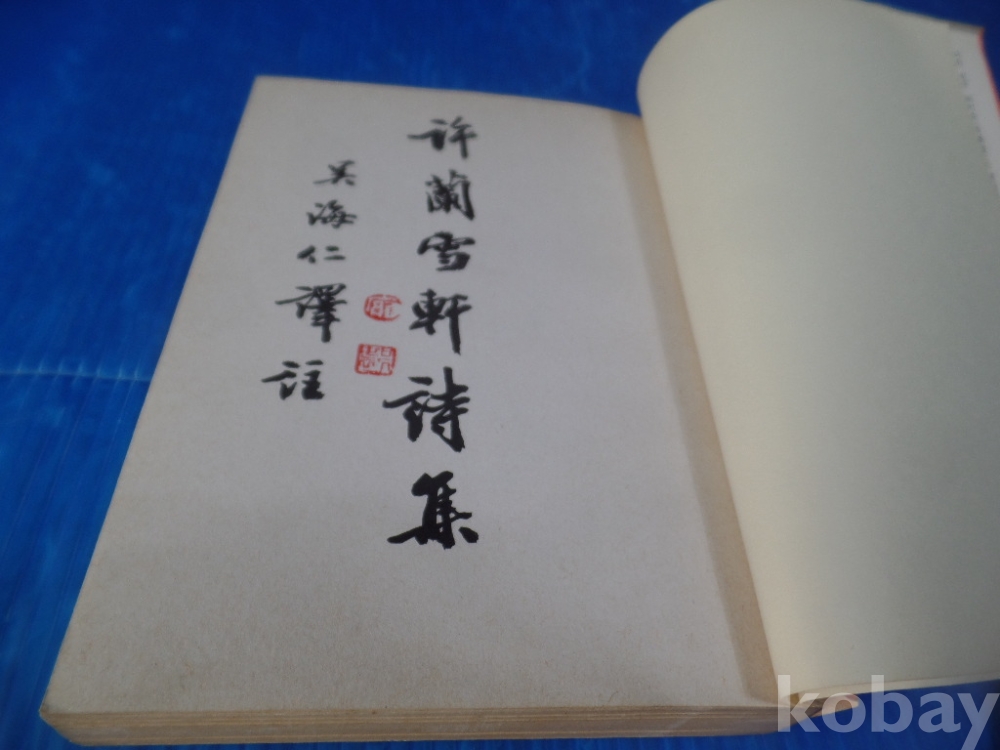 許蘭雪軒詩集
吳海仁譯註
kobay